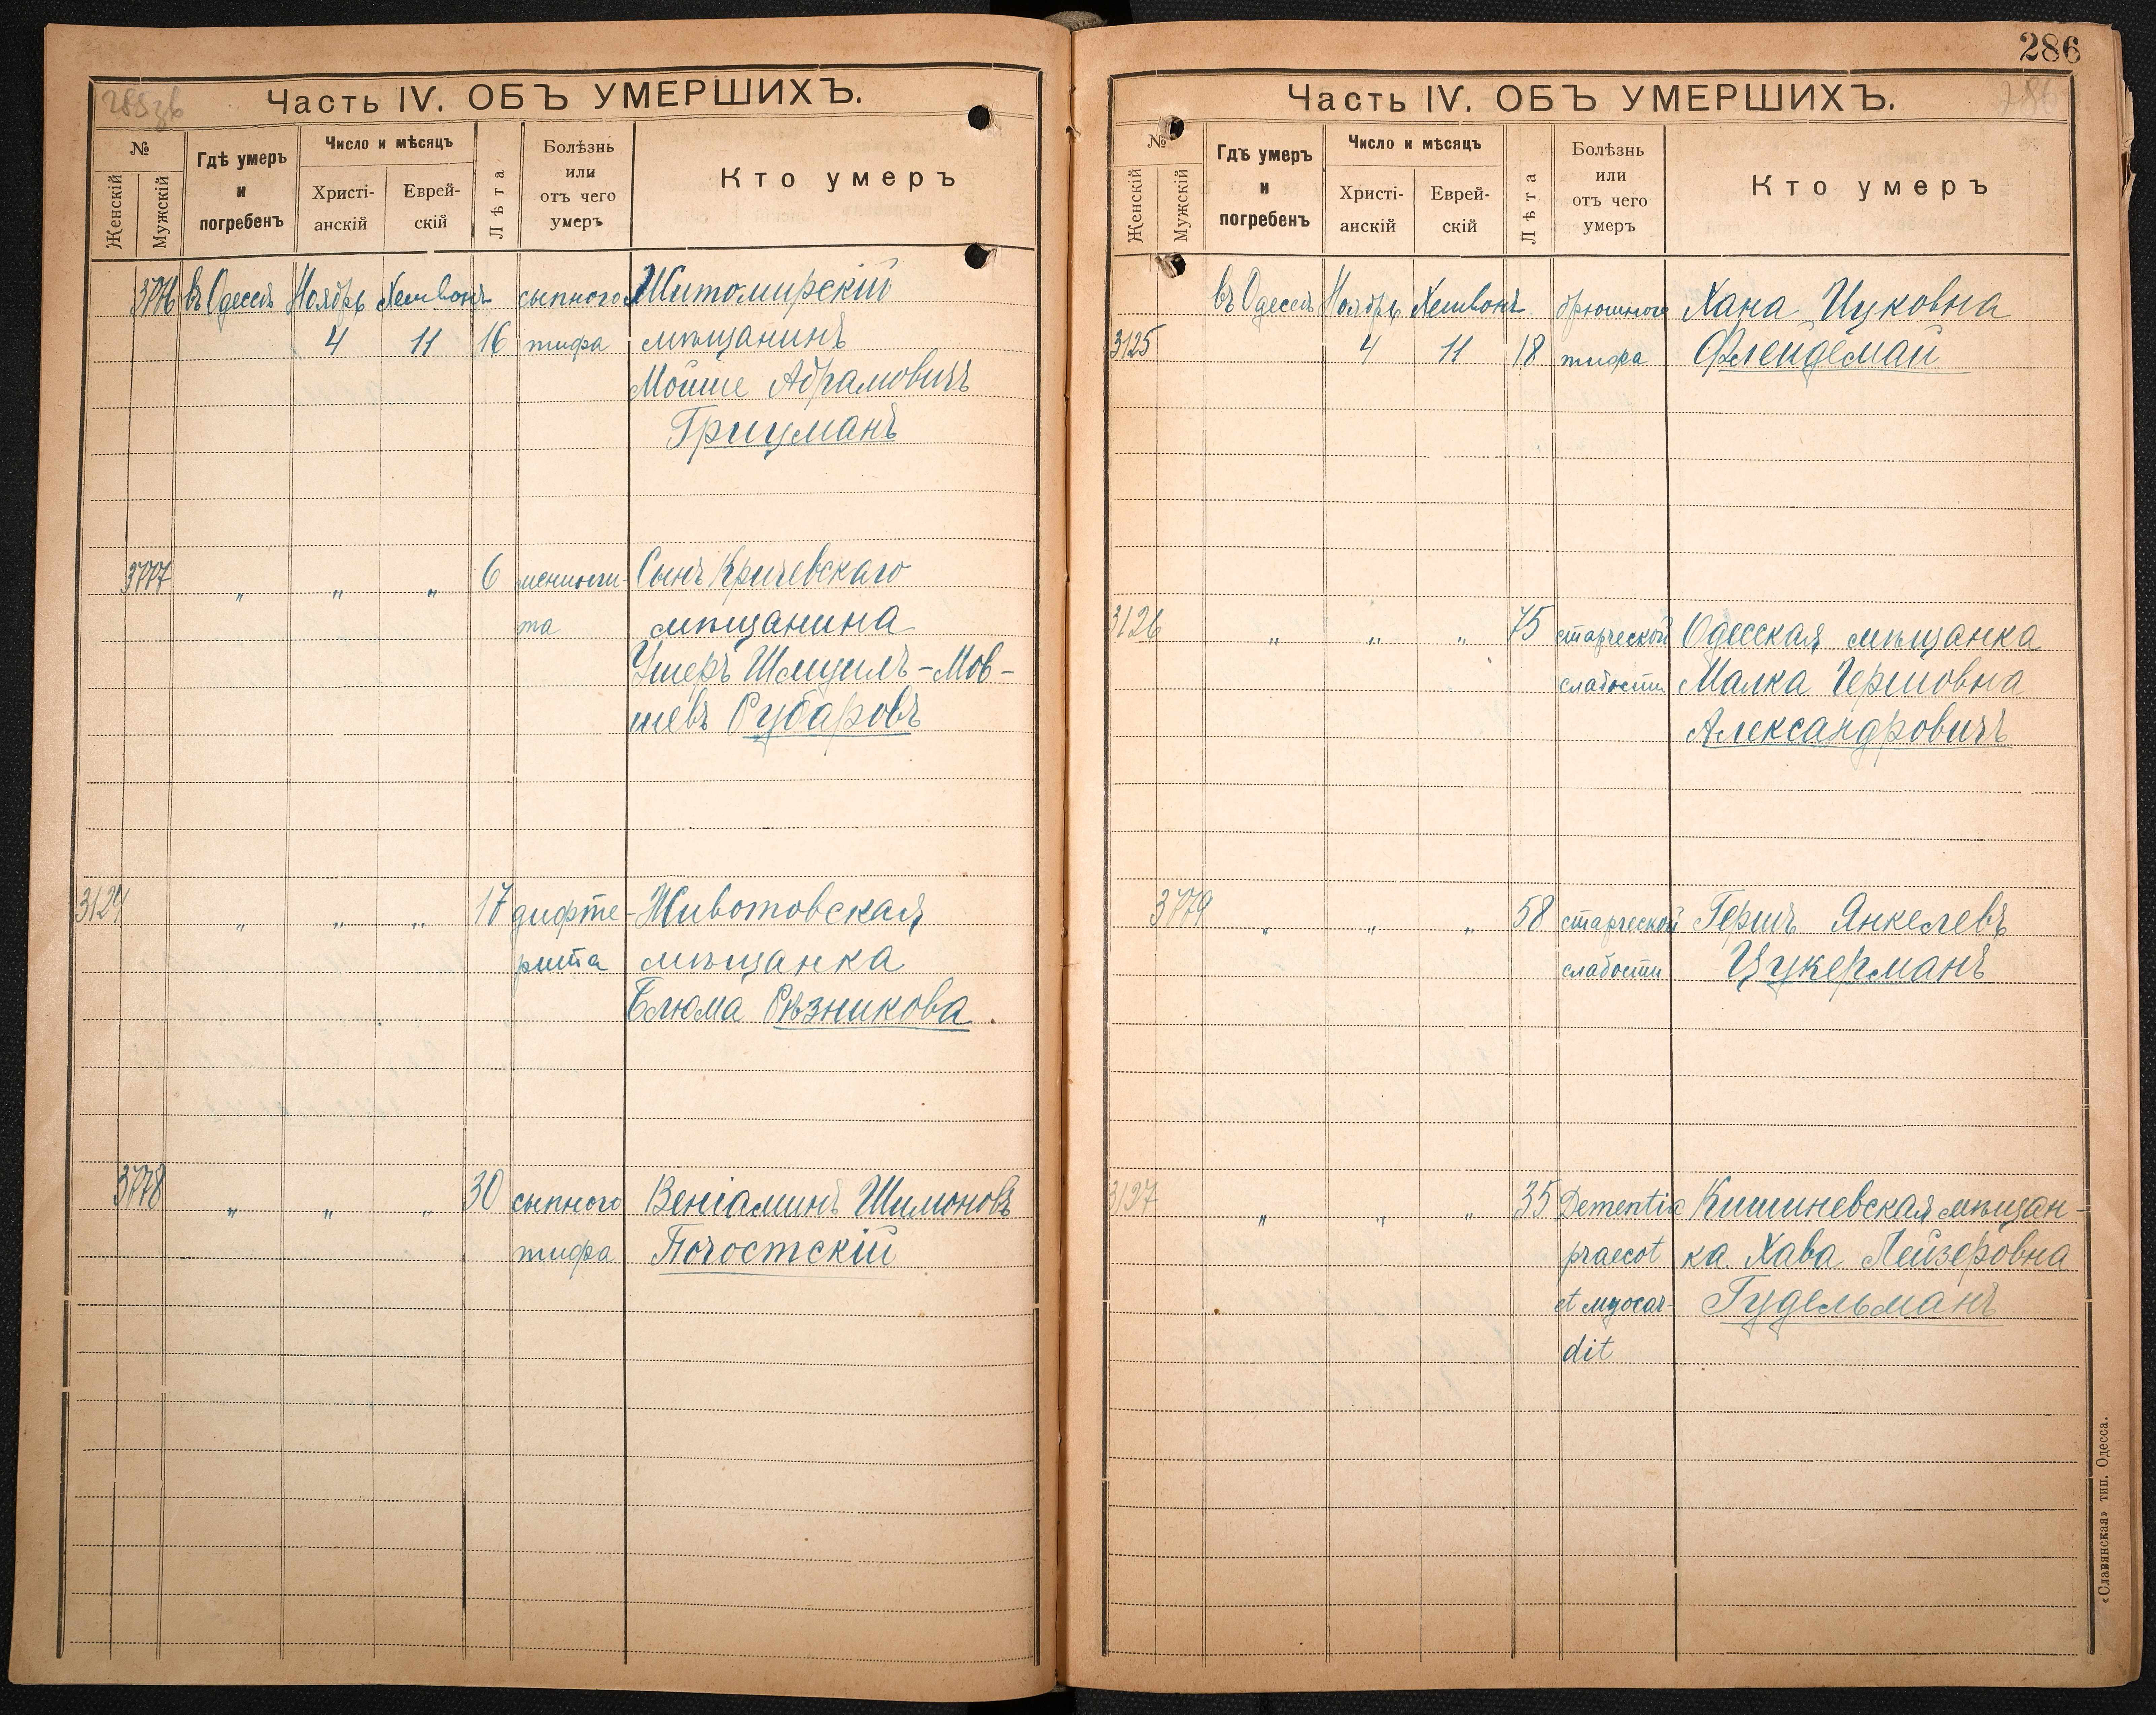 286
285зв
Часть IV. ОБЪ УМЕРШИХЪ.
№
Женскій
Мужскій
Гдѣ умеръ
и
погребенъ
Число и мѣсяцъ
Христі-
анскій
Еврей-
скій
Лѣта
Болѣзнь
или
отъ чего
умеръ
Кто умеръ
3776 въ Одессѣ Ноябрь Хешвонъ сыпного Житомирскій
4 11 16 тифа мѣщанинъ
Мойше Абрамовичъ
Грицманъ
3777 „ „ „ 6 менинги- Сынъ Кричевскаго
та мѣщанина
Ушеръ Шмуилъ-Мов-
шевъ Рубаровъ
3124 „ „ „ 17 дифте- Животовская
рита мѣщанка
Блюма Рѣзникова.
3778 „ „ „ 30 сыпного Веніаминъ Шимоновъ
тифа Погостскій
Часть IV. ОБЪ УМЕРШИХЪ.
286
№
Женскій
Мужскій
Гдѣ умеръ
и
погребенъ
Число и мѣсяцъ
Христі-
анскій
Еврей-
скій
Лѣта
Болѣзнь
или
отъ чего
умеръ
Кто умеръ
въ Одессѣ Ноябрь Хешвонъ брюшного Хана Ицковна
3125 4 11 18 тифа
3126 „ „ „ 75 старческой Одесская мѣщанка
слабости Малка Гершовна
Александровичъ
3779 „ „ „ 58 старческой Гершъ Янкелевъ
слабости Цукерманъ
3127 „ „ „ 35 Dementia Кишиневская мѣщан-
praecot ка Хава Лейзеровна
et myocar- Гудельманъ
dit
«Славянская» тип. Одесса.